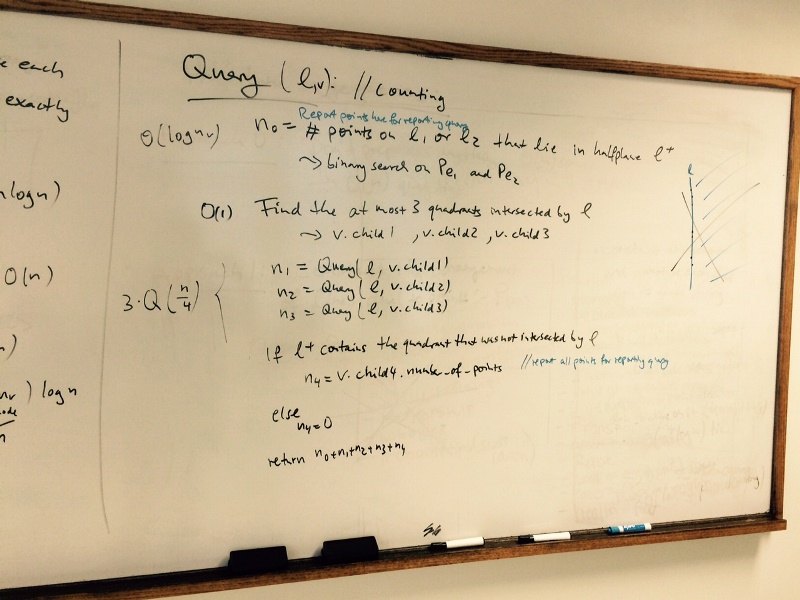 e each
exactly
nlogn)
O(n)
)
nv) logn
node
n
Query (ℓ,v): //Counting
Report points here for reporting query
O(log nv) n0 = # points on ℓ1 or ℓ2 that lie in halfplane ℓ+
→ binary search on Pe1 and Pe2
O(1) Find the at most 3 quadrants intersected by ℓ
→ v.child1, v.child2, v.child3
n1 = Query(ℓ, v.child1)
n2 = Query(ℓ, v.child2)
3·Q(n/4) {
n3 = Query(ℓ, v.child3)
If ℓ+ contains the quadrant that was not intersected by ℓ
n4 = v.child4.number-of-points //report all points for reporting query
else
n4=0
return n0+n1+n2+n3+n4
ℓ